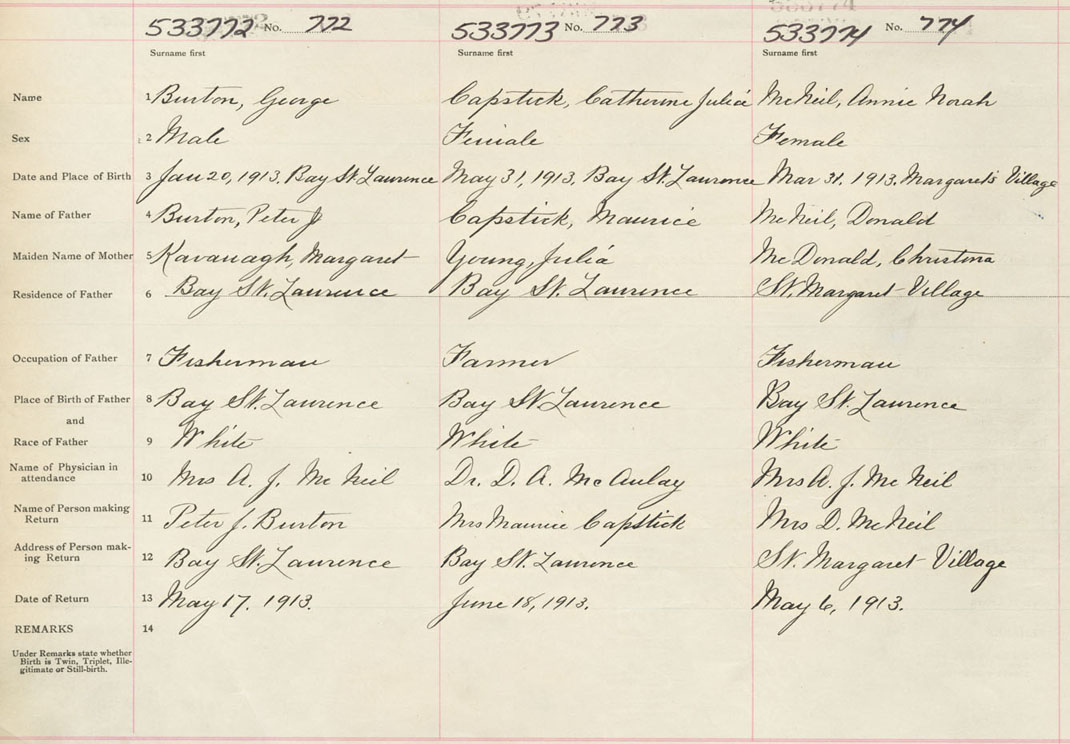 533772 No. 772 533773 No. 773 533774 No. 774
Surname first Surname first Surname first
Name 1 Burton, George Capstick, Catherine Julia McNeil, Annie Norah
Sex 2 Male Female Female
Date and Place of Birth 3 Jan 20, 1913. Bay St. Laurence May 31, 1913, Bay St. Laurence Mar 31, 1913. Margaret's Village
Name of Father 4 Burton, Peter J Capstick, Maurice McNeil, Donald
Maiden Name of Mother 5 Kavanagh, Margaret Young, Julia McDonald, Christina
Residence of Father 6 Bay St. Laurence Bay St. Laurence St. Margaret Village
Occupation of Father 7 Fisherman Farmer Fisherman
Place of Birth of Father 8 Bay St. Laurence Bay St. Laurence Bay St. Laurence
and
Race of Father 9 White White White
Name of Physician in
attendance 10 Mrs A. J. McNeil Dr. D. A. McAulay Mrs A. J. McNeil
Name of Person making
Return 11 Peter J. Burton Mrs Maurice Capstick Mrs D. McNeil
Address of Person mak-
ing Return 12 Bay St. Laurence Bay St. Laurence St. Margaret Village
Date of Return 13 May 17, 1913. June 18, 1913. May 6, 1913.
REMARKS 14
Under Remarks state whether
Birth is Twin, Triplet, Ille-
gitimate or Still-birth.